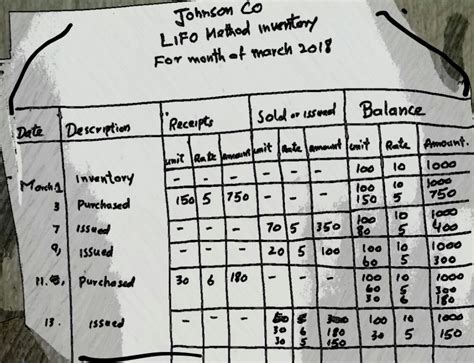 Johnson Co
LIFO Method inventory
For month of march 2018
Date Description Receipts Sold or issued Balance
unit Rate amount unit Rate amount unit Rate Amount.
March 1 Inventory - - - - - - 100 10 1000
3 Purchased 150 5 750 - - - 100 10 1000
150 5 750
7 Issued - - - 70 5 350 100 10 1000
80 5 400
9, Issued - - - 20 5 100 100 10 1000
60 5 300
11. Purchased 30 6 180 - - - 100 10 1000
60 5 300
30 6 180
13. Issued - - - 100 10 1000
30 6 180 30 5 150
30 5 150